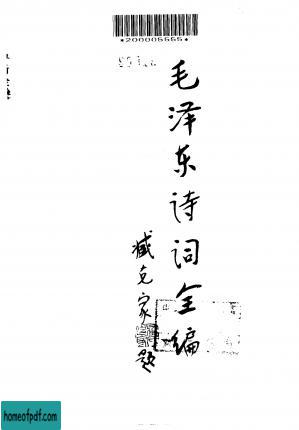 *200005555*
毛泽东诗词全编
臧克家题
homeofpdf.com